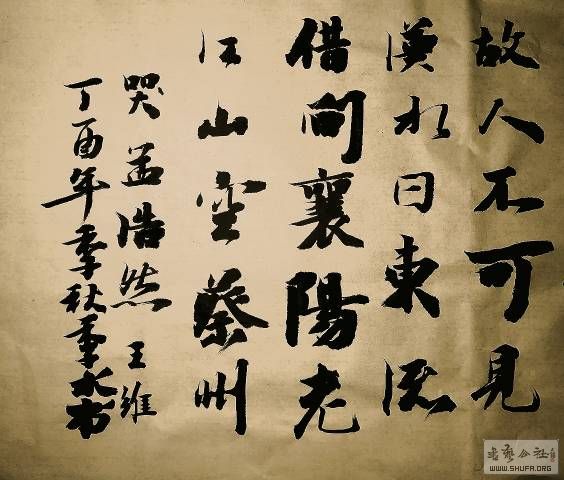 故人不可見
漢水日東流
借问襄陽老
江山空蔡州
哭孟浩然 王維
丁酉年季秋季水书
WWW.SHUFA.ORG